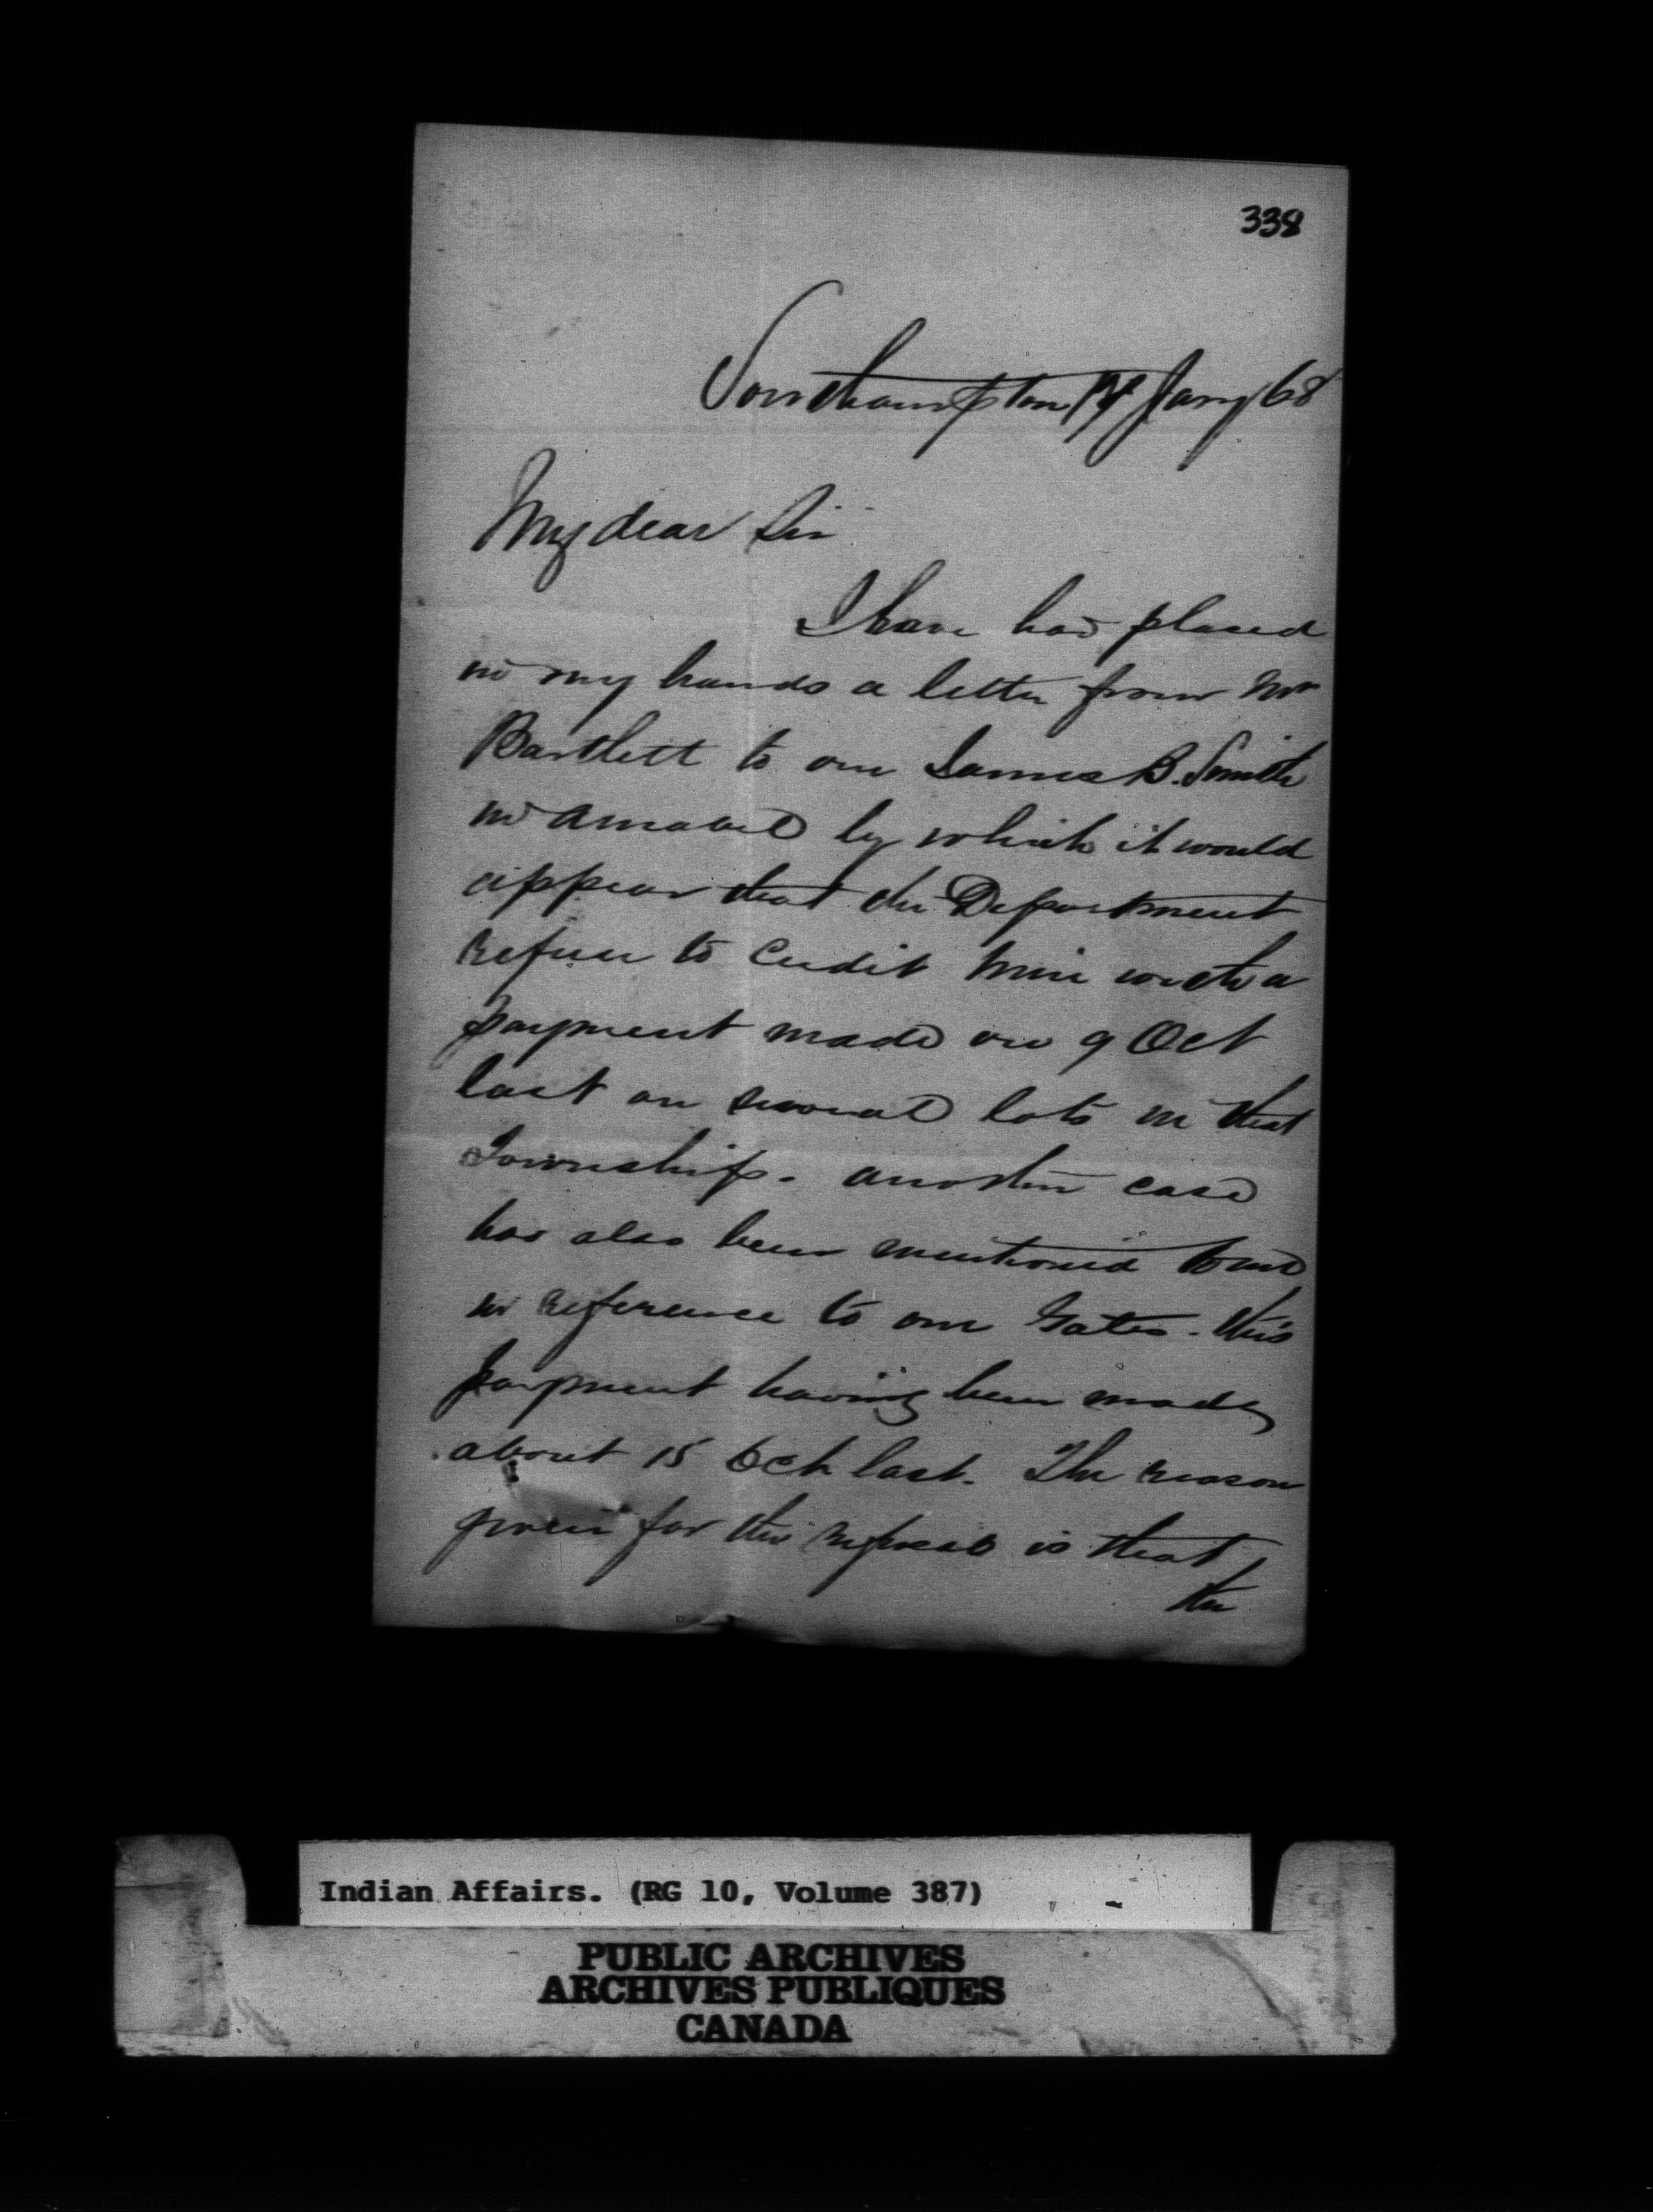 338
Southampton Jany 68
My dear Sir
I have had placed
in my hands a letter from Mr
Bartlett to one James B. Smith
in Amabel by which it would
appear that the Department
refuse to credit him with a
payment made on 9 Oct
last on several lots in that
Township. another case
has also been mentioned to me
in reference to one Gates. this
payment having been made
about 15 Oct last. The reason
given for this refusal is that
the
Indian Affairs. (RG 10, Volume 387)
PUBLIC ARCHIVES
ARCHIVES PUBLIQUES
CANADA